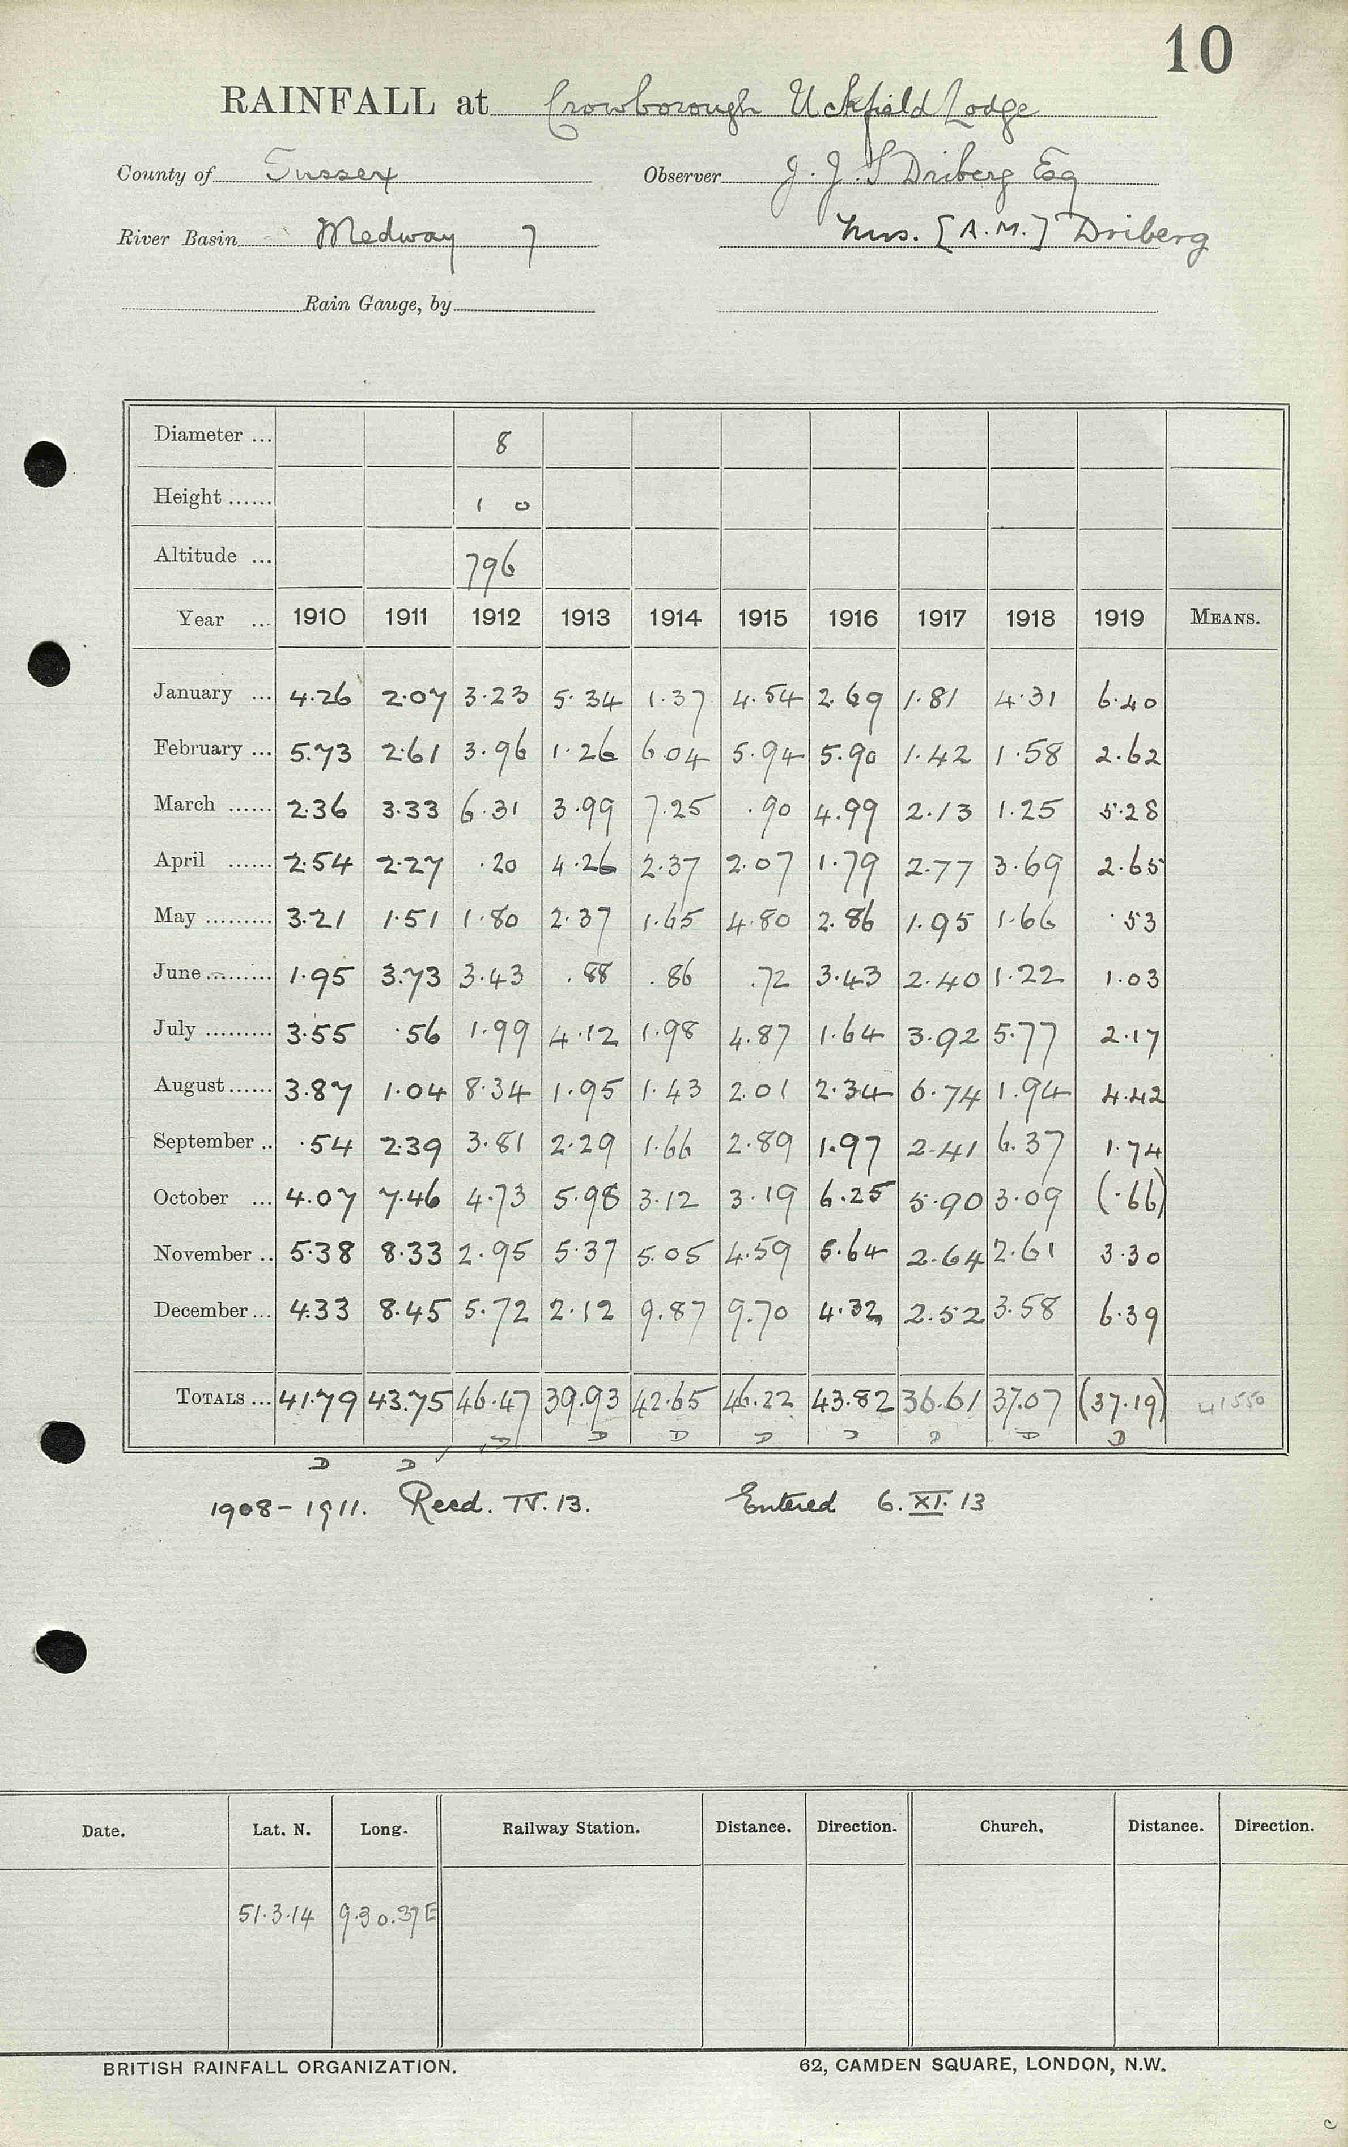 10
RAINFALL at Crowborough Uckfield Lodge
County of Sussex Observer J. J. S Driberg Esq
River Basin Medway 7 Mrs. [A.M.] Driberg
Rain Gauge, by
Diameter ... 8
Height ...... 1 0
Altitude ... 796
Year ... 1910 1911 1912 1913 1914 1915 1916 1917 1918 1919 MEANS.
January ... 4.26 2.07 3.23 5.34 1.37 4.54 2.69 1.81 4.31 6.40
February ... 5.73 2.61 3.96 1.26 6.04 5.94 5.90 1.42 1.58 2.62
March ...... 2.36 3.33 6.31 3.99 7.25 .90 4.99 2.13 1.25 5.28
April ...... 2.54 2.27 .20 4.26 2.37 2.07 1.79 2.77 3.69 2.65
May ......... 3.21 1.51 1.80 2.37 1.65 4.80 2.86 1.95 1.66 .53
June ......... 1.95 3.73 3.43 .88 .86 .72 3.43 2.40 1.22 1.03
July ......... 3.55 .56 1.99 4.12 1.98 4.87 1.64 3.92 5.77 2.17
August ...... 3.87 1.04 8.34 1.95 1.43 2.01 2.34 6.74 1.94 4.42
September .. .54 2.39 3.81 2.29 1.66 2.89 1.97 2.41 6.37 1.74
October ... 4.07 7.46 4.73 5.98 3.12 3.19 6.25 5.90 3.09 (.66)
November .. 5.38 8.33 2.95 5.37 5.05 4.59 5.64 2.64 2.61 3.30
December ... 4.33 8.45 5.72 2.12 9.87 9.70 4.32 2.52 3.58 6.39
TOTALS ... 41.79 43.75 46.47 39.93 42.65 46.22 43.82 36.61 37.07 (37.19) 41550
D D D D D D D D
D D
1908-1911. Recd. IV. 13. Entered 6. XI. 13
Date. Lat. N. Long. Railway Station. Distance. Direction. Church. Distance. Direction.
51.3.14
BRITISH RAINFALL ORGANIZATION. 62, CAMDEN SQUARE, LONDON, N.W.
c